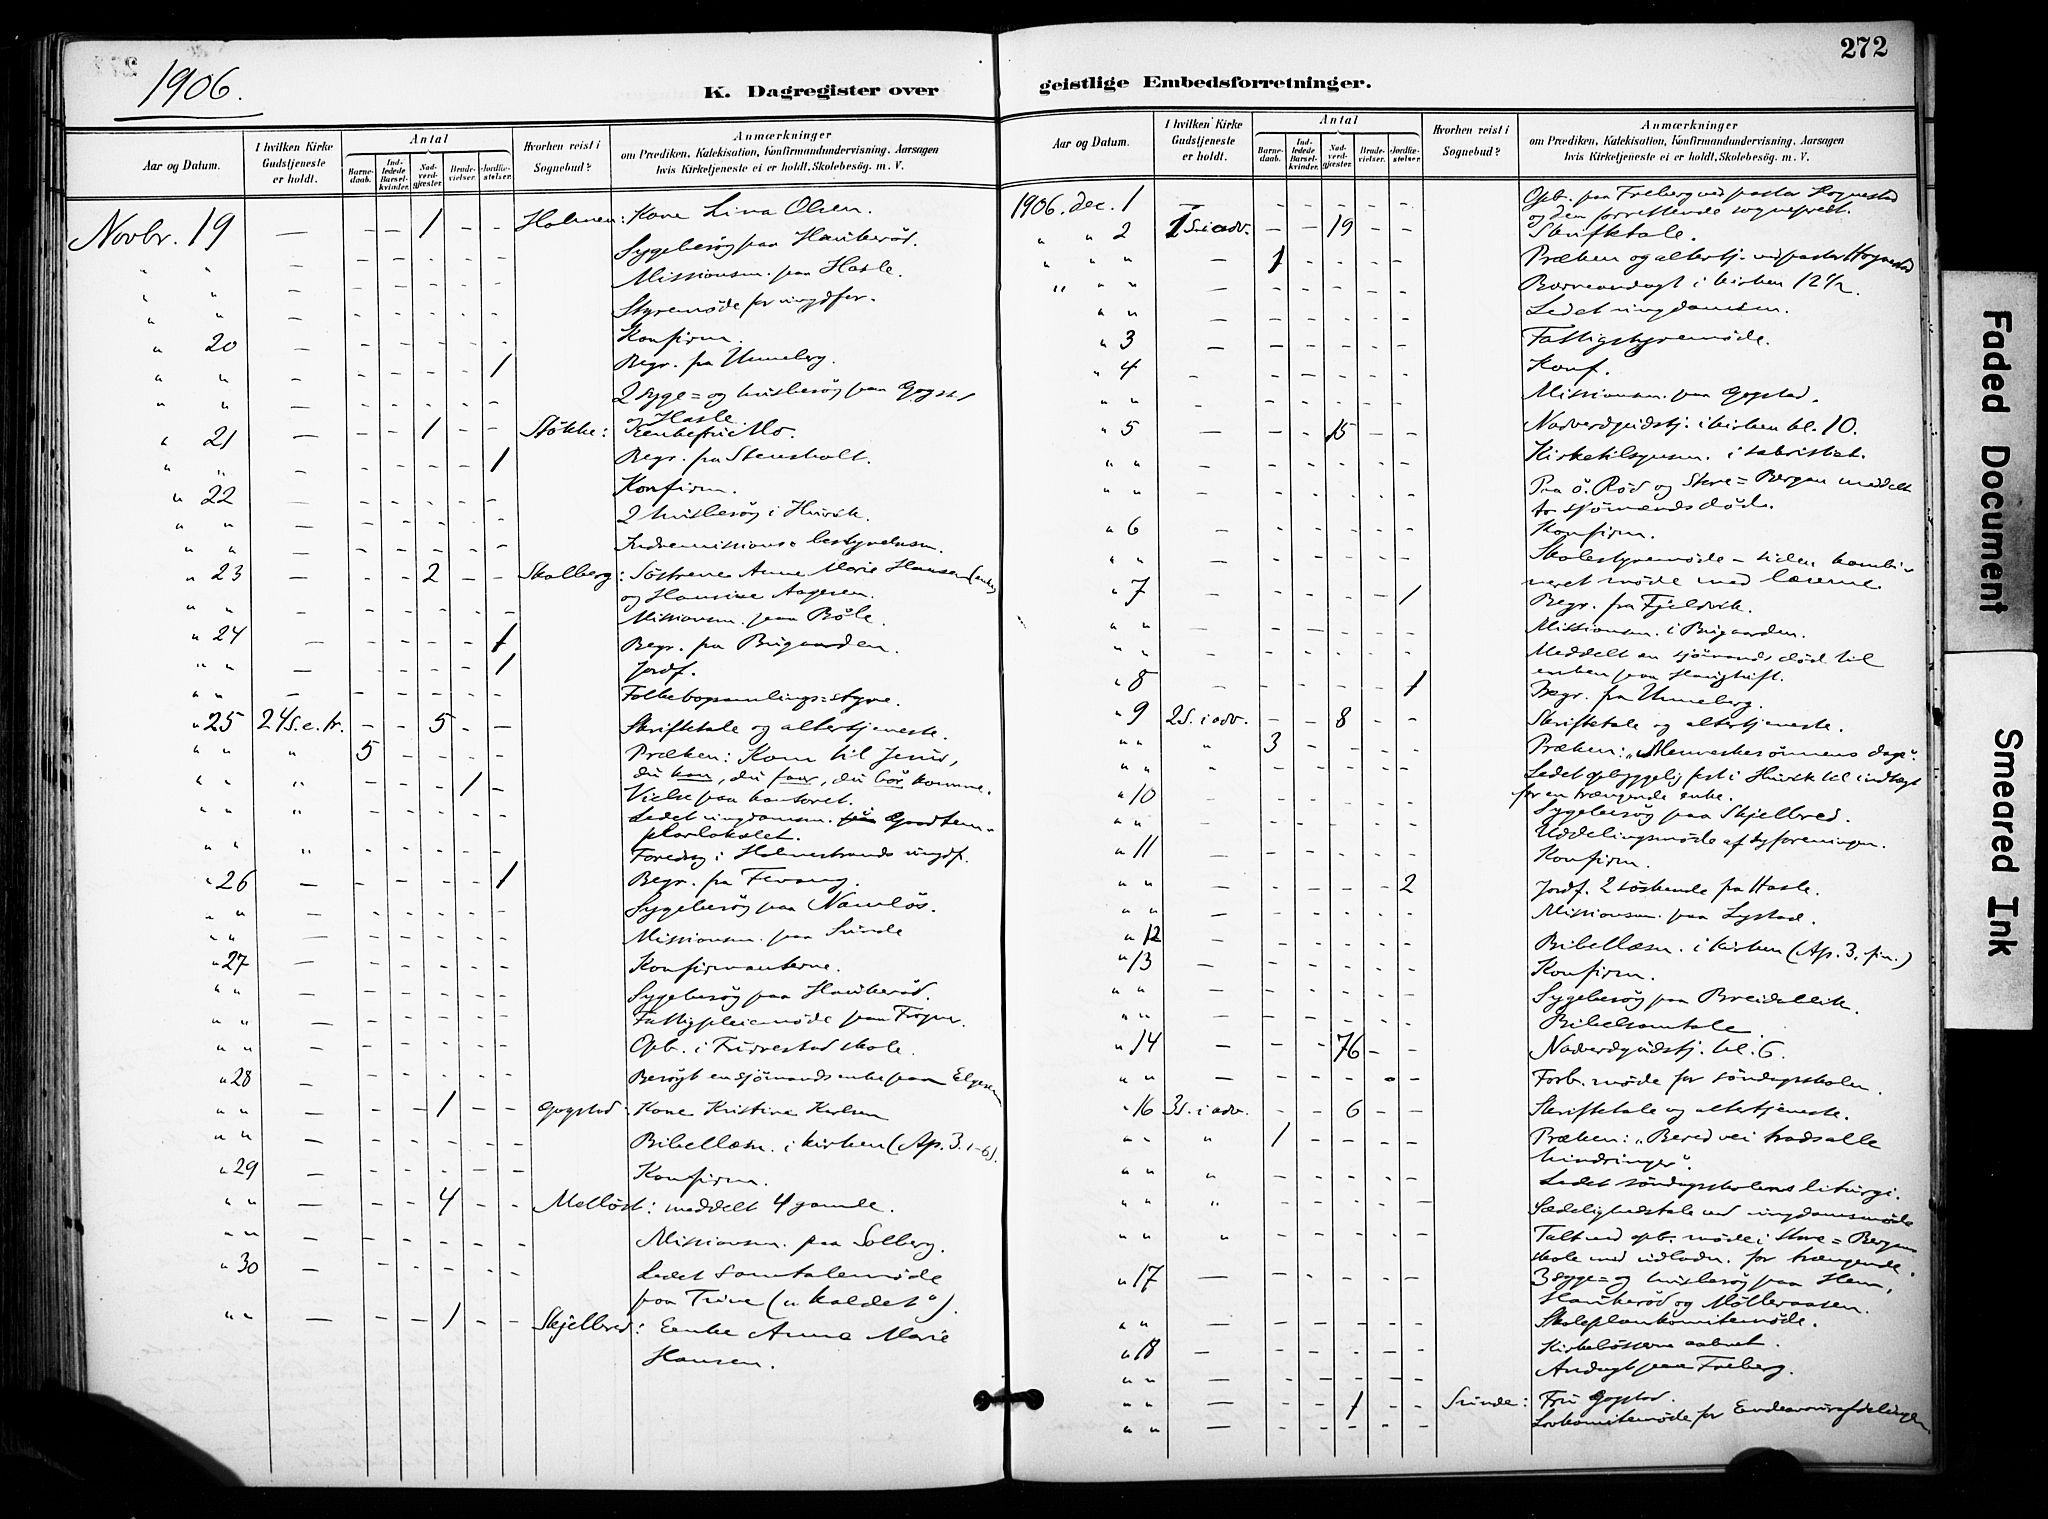 272
1906.
K. Dagregister over geistlige Embedsforretninger.
Aar og Datum.
I hvilken Kirke Gudstjeneste er holdt.
Antal
Barnedaab.
Indledede Barselkvinder.
Nadverdgjæster
Brudevielser.
Jordfæstelser.
Hvorhen reist i Sognebud?
Anmærkninger
om Prædiken, Katekisation, Konfirmandundervisning, Aarsagen
hvis Kirketjeneste ei er holdt. Skolebesög. m. V.
Novbr. 19 — – – 1 – – Holmen: Kone Lina Olsen.
Sygebesøg paa Haukerød.
" " — – – – – – Missionsm. paa Hasle.
" " — – – – – – Styremøde for ungdfor.
" 20 — – – – – – Konfirm.
" " — – – – – 1 Begr. fra Unneberg.
" " — – – – – – 2 syge= og husbesøg paa Gogst.
og Hasle
" 21 — – – 1 – – Støkke: Eenkefru Mo.
" " — – – – – 1 Begr. fra Stensholt.
" 22 — – – – – – Konfirm.
" " — – – – – – 2 husbesøg i Hvirsk.
" " — – – – – – Indremissions= bestyrelsesm.
" 23 — – – 2 – – Skolberg: Søstrene Anne Marie Hansen (enke)
og Hansine Aagesen.
" " — – – – – – Missionsm. paa Bøle.
" 24 — – – – – 1 Begr. fra Brigaarden.
" " — – – – – 1 Jordf.
" " — – – – – – Folkebogsamlings=styre.
" 25 24 S. e. tr. – – 5 – – Skriftetale og altertjeneste.
" " " 5 – – – – Præken: Kom til Jesus,
du kan, du faar, du bør komme.
" " " – – – 1 – Vielse paa kontoret.
" " " – – – – – Ledet ungdomsm. paa Goodtem=
plarlokalet.
" " " – – – – – Foredrag i Holmestrands ungdf.
" 26 — – – – – 1 Begr. fra Fevang.
" " — – – – – – Sygebesøg paa Namløs.
" " — – – – – – Missionsm. paa Sunde
" 27 — – – – – – Konfirmanterne.
" " — – – – – – Sygebesøg paa Haukerød.
" " — – – – – – Fattigpleiemøde paa Frogner.
" " — – – – – – Opb. i Furestad skole.
" 28 — – – – – – Besøgt en sjømandsenke paa Elgesem
" " — – – 1 – – Gogstad: Kone Kristine Karlsen
" " — – – – – – Bibellæsn. i kirken (Ap. 3. 1–6).
" 29 — – – – – – Konfirm.
" " — – – 4 – – Melløst: meddelt 4 gamle.
" " — – – – – – Missionsm. paa Solberg.
" 30 — – – – – – Ledet samtalemøde
paa Trine („kaldet").
" " — – – 1 – – Skjelbred: Eenke Anne Marie
Hansen.
Aar og Datum.
I hvilken Kirke Gudstjeneste er holdt.
Antal
Barnedaab.
Indledede Barselkvinder.
Nadverdgjæster
Brudevielser.
Jordfæstelser.
Hvorhen reist i Sognebud?
Anmærkninger
om Prædiken, Katekisation, Konfirmandundervisning, Aarsagen
hvis Kirketjeneste ei er holdt. Skolebesög. m. V.
1906. dec. 1 — – – – – – Opb. paa Freberg ved pastor Hognestad
og den forrettende sogneprest.
" " 2 1 S. i adv. – – 19 – – Skriftetale.
" " " — 1 – – – – Præken og altertj. ved pastor Hognestad
" " " — – – – – – Barneandagt i kirken 12½.
" " — – – – – – Ledet ungdomsm.
" 3 — – – – – – Fattigstyremøde.
" 4 – – – – – – Konf.
" " – – – – – – Missionsm. paa Gogstad.
" 5 — – – 15 – – Nadverdgudstj. i kirken kl. 10.
" " — – – – – – Kirketilsynsm. i sakristiet.
" " — – – – – – Paa Ø. Rød og Store=Bergan meddelt
to sjømandsdøde.
" 6 — – – – – – Konfirm.
" " – – – – – – Skolestyremøde – siden kombi=
neret møde med lærerne.
" 7 — – – – – 1 Begr. fra Fjeldvik.
" " — – – – – – Missionsm. i Brigaarden.
" " – – – – – – Meddelt en sjømands død til
enken paa Haugtuft.
" 8 — – – – – 1 Begr. fra Unneberg.
" 9 2 S. i adv. – – 8 – – Skriftetale og altertjeneste.
" " " 3 – – – – Præken: „Menneskesønnens dage".
" " " – – – – – Ledet opbyggelig fest i Hvirsk til indtægt
for en trængende enke.
" 10 – – – – – – Sygebesøg paa Skjelbred.
" " – – – – – – Uddelingsmøde af syforeningen.
" 11 — – – – – – Konfirm.
" " — – – – – 2 Jordf. 2 søskende fra Hasle.
" " — – – – – – Missionsm. paa Lystad.
" 12 — – – – – – Bibellæsn. i kirken (Ap. 3. fin.)
" 13 — – – – – – Konfirm.
" " – – – – – – Sygebesøg paa Breidablik.
" " – – – – – – Bibelsamtale.
" 14 — – – 76 – – Nadverdgudstj. kl. 6.
" " — – – – – – Forb. møde for søndagsskolen.
" 16 3 S. i adv. – – 6 – – Skriftetale og altertjeneste.
" " " 1 – – – – Præken: „Bered vei trods alle
hindringer".
" " " – – – – – Ledet søndagsskolens liturgi.
" " " – – – – – Sædelighedstale ved ungdomsmøde
" " " – – – – – Talt ved opb. møde i Store=Bergan
skole med udlodn. for trængende.
" 17 — – – – – – 3 syge= og husbesøg paa Hem,
Haukerød og Møllersaasen.
" " — – – – – – Skoleplankomitemøde.
" 18 — – – – – – Kirkebøssene aabnet.
" " — – – – – – Andagt paa Freberg.
" " — – – 1 – – Sunde: Fru Gogstad.
" " — – – – – – Lovkomitemøde for Endeavourafdelingen
Faded Document
Smeared Ink